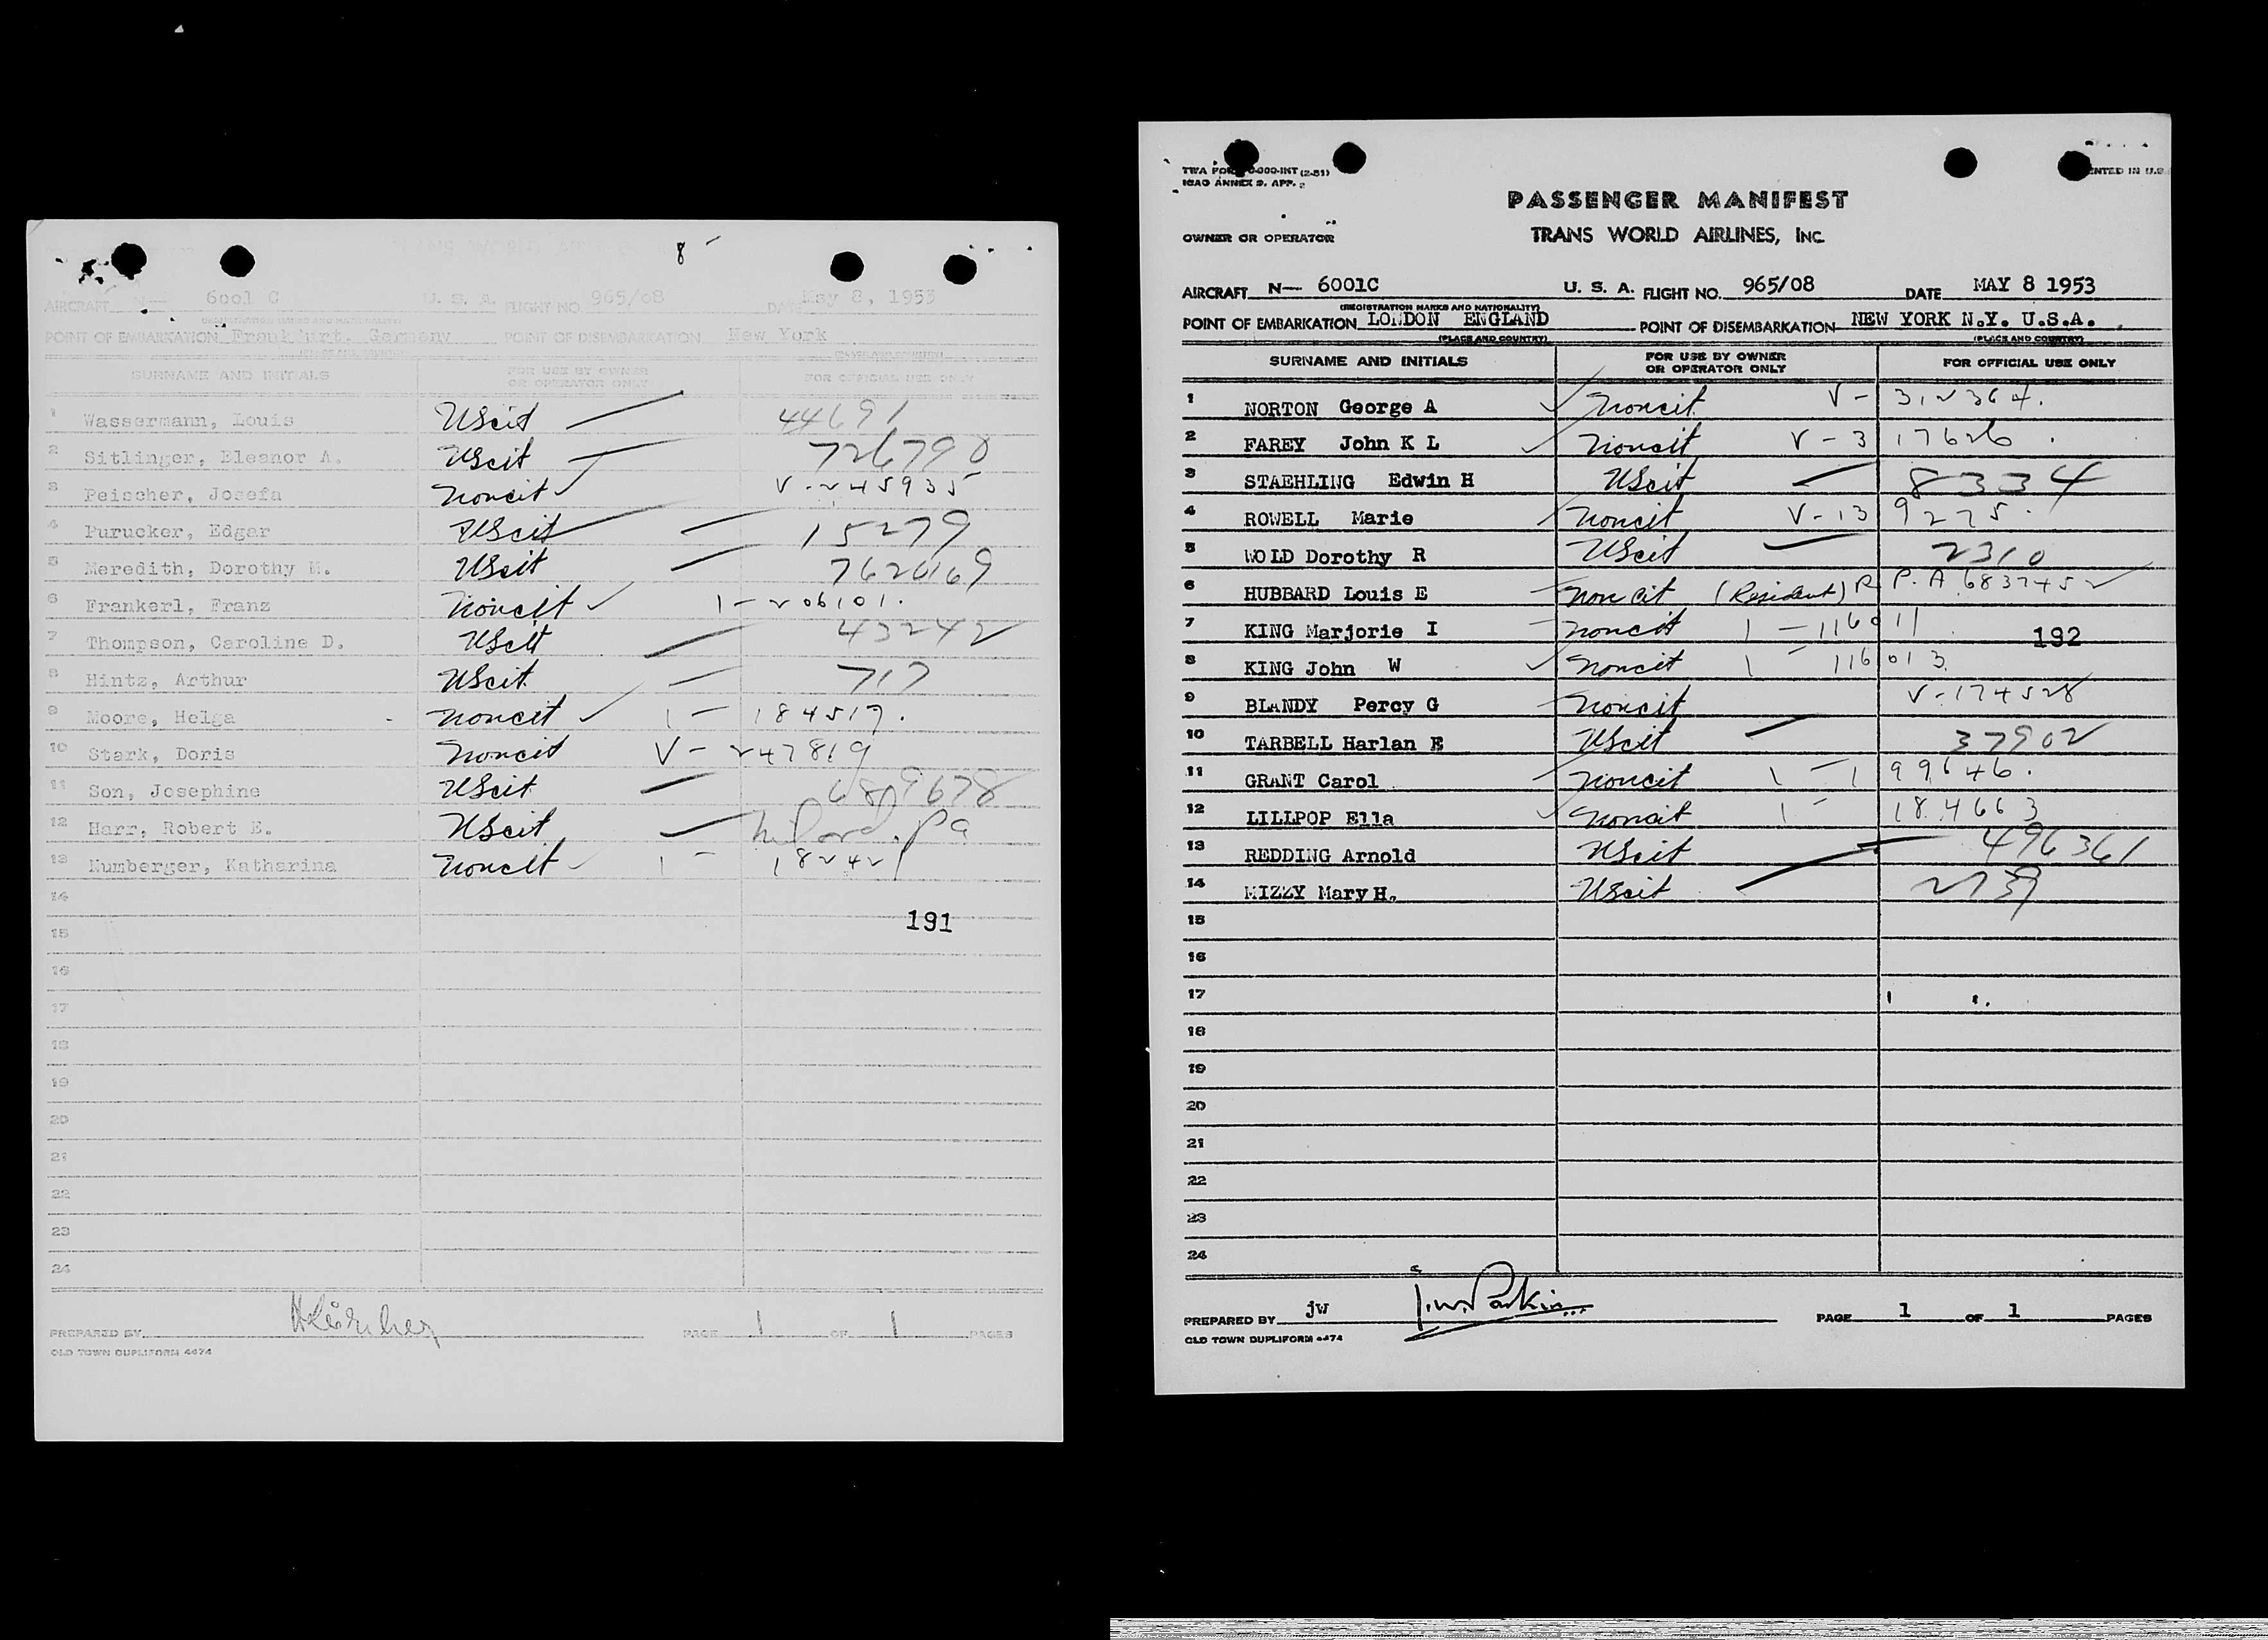 8 -
AIRCRAFT N— 6001 C U. S. A. FLIGHT NO. 965/08 DATE May 8, 1953
POINT OF EMBARKATION Frankfurt, Germany POINT OF DISEMBARKATION New York
SURNAME AND INITIALS FOR USE BY OWNER OR OPERATOR ONLY FOR OFFICIAL USE ONLY
1 Wassermann, Louis UScit — 44691
2 Sitlinger, Eleanor A. UScit — 726790
3 Peischer, Josefa Noncit ✓ V-245935
4 Purucker, Edgar UScit — 15279
5 Meredith, Dorothy M. UScit — 7626169
6 Frankerl, Franz Noncit ✓ 1-206101.
7 Thompson, Caroline D. UScit — 43242
8 Hintz, Arthur UScit — 717
9 Moore, Helga - Noncit ✓ 1-184517.
10 Stark, Doris Noncit V-247819
11 Son, Josephine UScit — 689678
12 Harr, Robert E. UScit — Pa
13 Numberger, Katharina Noncit ✓ 1-182421
14
15
191
16
17
18
19
20
21
22
23
24
PREPARED BY PAGE 1 OF 1 PAGES
OLD TOWN DUPLIFORM 4474
TWA FORM 0-000-INT (2-51)
ICAO ANNEX 9, APP. 2
PRINTED IN U.S.
PASSENGER MANIFEST
OWNER OR OPERATOR TRANS WORLD AIRLINES, INC.
AIRCRAFT N— 6001C U. S. A. FLIGHT NO. 965/08 DATE MAY 8 1953
(REGISTRATION MARKS AND NATIONALITY)
POINT OF EMBARKATION LONDON ENGLAND POINT OF DISEMBARKATION NEW YORK N.Y. U.S.A.
(PLACE AND COUNTRY) (PLACE AND COUNTRY)
SURNAME AND INITIALS FOR USE BY OWNER OR OPERATOR ONLY FOR OFFICIAL USE ONLY
1 NORTON George A ✓ Noncit V-312364.
2 FAREY John K L ✓ Noncit V-317626.
3 STAEHLING Edwin H UScit — 8334
4 ROWELL Marie Noncit V-139275.
5 WOLD Dorothy R UScit — 2310
6 HUBBARD Louis E Non cit (Resident) R P. A 6837452
7 KING Marjorie I Noncit 1-116011
192
8 KING John W ✓ Noncit 1-116013
9 BLANDY Percy G Noncit V-174528
10 TARBELL Harlan E UScit — 37902
11 GRANT Carol Noncit 1-199646.
12 LILLPOP Ella ✓ Noncit 1-184663
13 REDDING Arnold UScit — 496361
14 MIZZY Mary H. UScit — 2739
15
16
17
18
19
20
21
22
23
24
PREPARED BY jw J.W. Parkin PAGE 1 OF 1 PAGES
OLD TOWN DUPLIFORM 4474